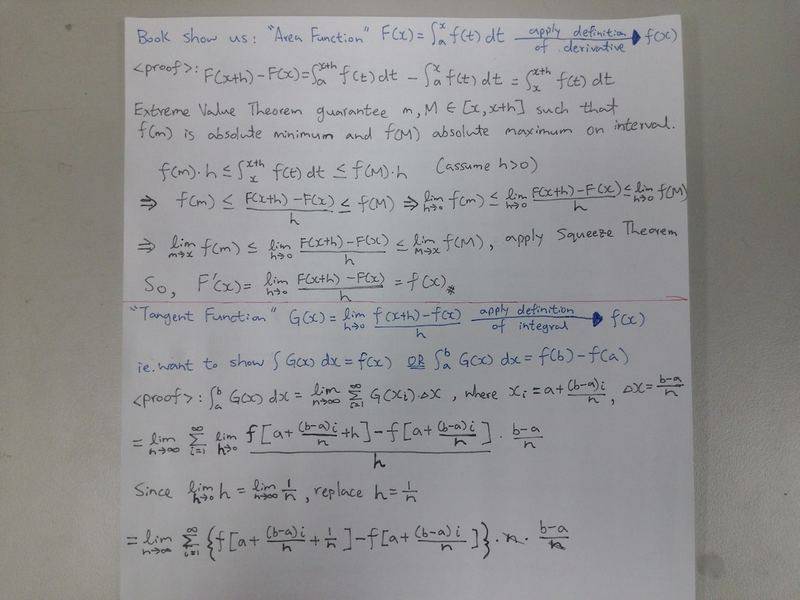 Book show us: "Area Function" F(x)=∫ₐˣ f(t) dt —apply definition of derivative→ f(x)
<proof>: F(x+h)-F(x)=∫ₐˣ⁺ʰ f(t) dt - ∫ₐˣ f(t) dt = ∫ₓˣ⁺ʰ f(t) dt
Extreme Value Theorem guarantee m, M ∈ [x, x+h] such that
f(m) is absolute minimum and f(M) absolute maximum on interval.
f(m)·h ≤ ∫ₓˣ⁺ʰ f(t) dt ≤ f(M)·h (assume h>0)
⇒ f(m) ≤ (F(x+h)-F(x))/h ≤ f(M) ⇒ lim_{h→0} f(m) ≤ lim_{h→0} (F(x+h)-F(x))/h ≤ lim_{h→0} f(M)
⇒ lim_{m→x} f(m) ≤ lim_{h→0} (F(x+h)-F(x))/h ≤ lim_{M→x} f(M), apply Squeeze Theorem
So, F'(x)= lim_{h→0} (F(x+h)-F(x))/h = f(x)※
"Tangent Function" G(x)= lim_{h→0} (f(x+h)-f(x))/h —apply definition of integral→ f(x)
ie. want to show ∫ G(x) dx = f(x) OR ∫ₐᵇ G(x) dx = f(b)-f(a)
<proof>: ∫ₐᵇ G(x) dx = lim_{n→∞} Σ_{i=1}^{∞} G(xᵢ)·Δx, where xᵢ = a+(b-a)i/n, Δx = (b-a)/n
= lim_{n→∞} Σ_{i=1}^{∞} lim_{h→0} (f[a+(b-a)i/n+h]-f[a+(b-a)i/n])/h · (b-a)/n
Since lim_{h→0} h = lim_{n→∞} 1/n, replace h=1/n
= lim_{n→∞} Σ_{i=1}^{∞} {f[a+(b-a)i/n+1/n]-f[a+(b-a)i/n]}·n·(b-a)/n